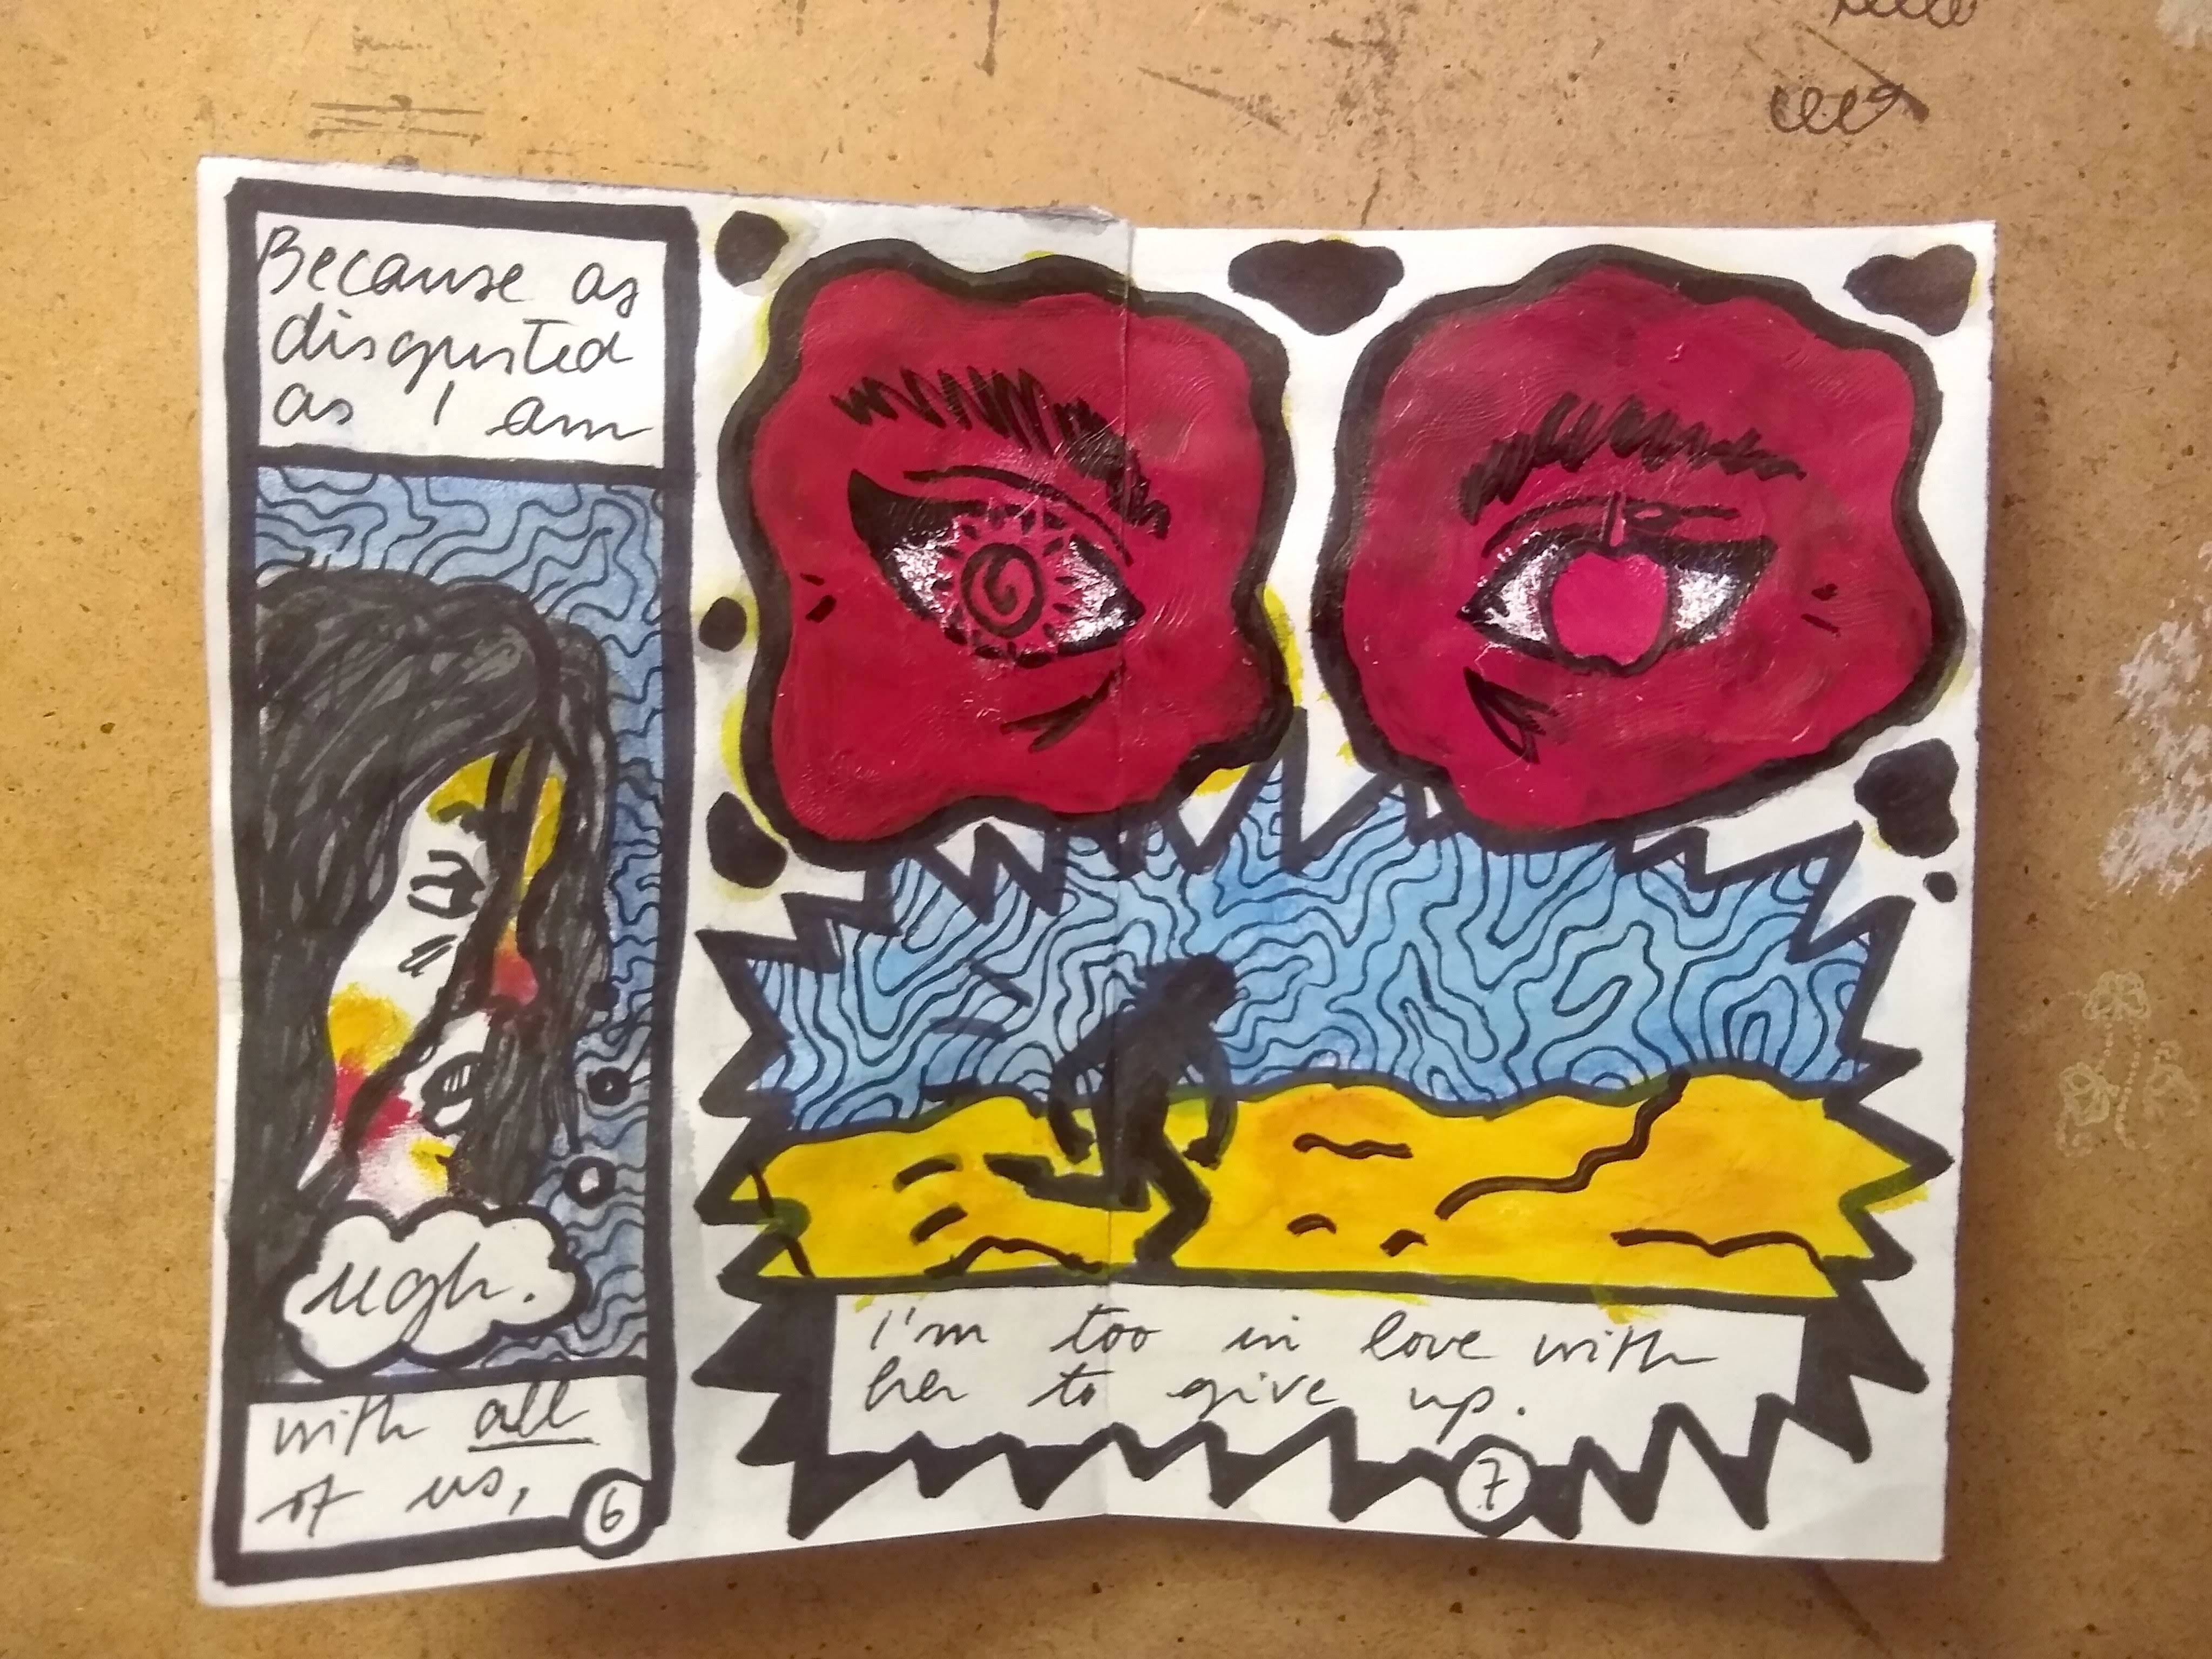 Because as
disgusted
as I am
ugh.
with all
of us,
6
I'm too in love with
her to give up.
7